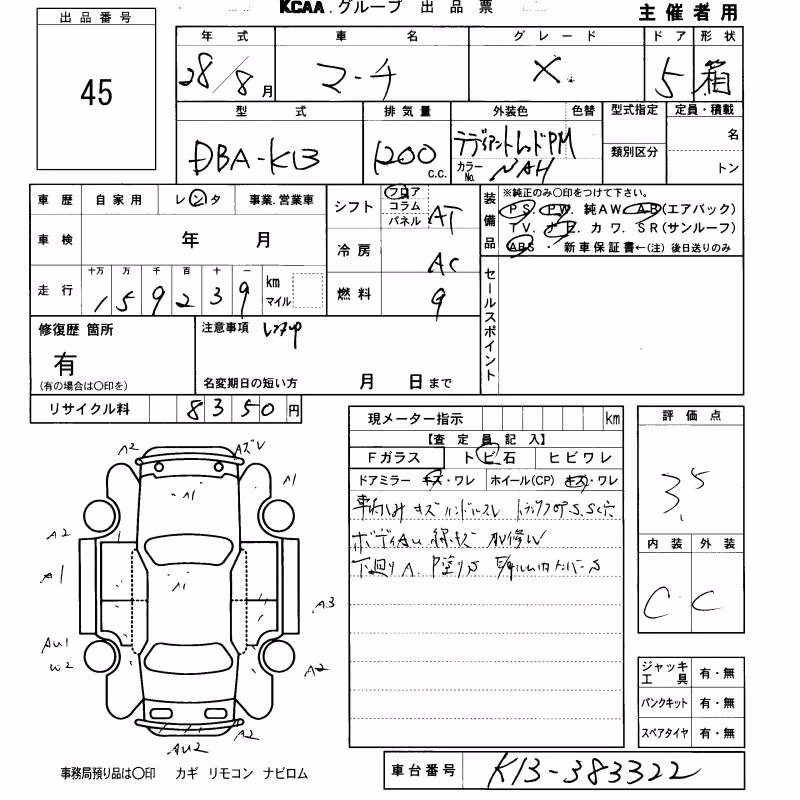 KCAA.グループ 出品票
主催者用
出品番号
45
年式 車名 グレード ドア 形状
28/8月 マーチ X. 5 箱
型式 排気量 外装色 色替 型式指定 定員・積載
DBA-K13 1200 C.C. ラディアントレッドPM
カラーNo. NAH
類別区分
名
トン
車歴 自家用 レンタ 事業.営業車
車検 年 月
走行 十万 万 千 百 十 一 km マイル
1 5 9 2 3 9
シフト フロア コラム パネル AT
冷房 AC
燃料 g
装備品 ※純正のみ〇印をつけて下さい。
PS. PW. 純AW. AB(エアバック)
TV. ナビ. カワ. SR(サンルーフ)
ABS ・ 新車保証書←(注) 後日送りのみ
セールスポイント
修復歴 箇所
有
(有の場合は〇印を)
注意事項 レンタup
名変期日の短い方 月 日まで
リサイクル料 8350円
現メーター指示 km
【査定員記入】
Fガラス トビ石 ヒビワレ
ドアミラー キズ・ワレ ホイール(CP) キズ・ワレ
キズ ハンドルスレ
ボディAu 線キズ
下廻り
評価点
3.5
内装 外装
C C
ジャッキ工具 有・無
パンクキット 有・無
スペアタイヤ 有・無
A2 Aズレ
A1 A1
A2
A1 A1
A3
AU1
W2 A2
A2
AU2
事務局預り品は〇印 カギ リモコン ナビロム
車台番号 K13-383322